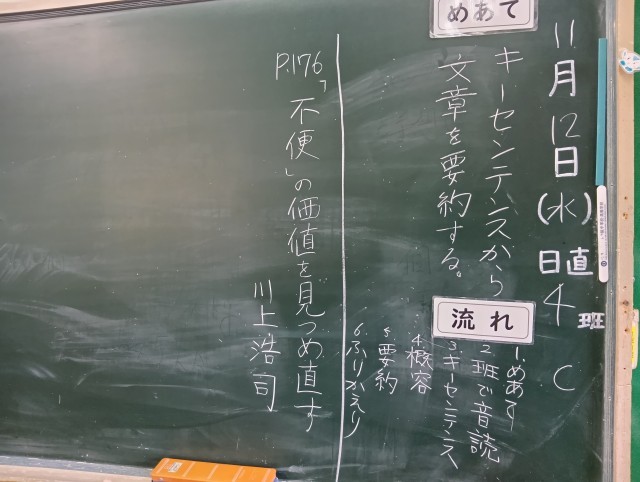 11月12日(水)日直4班 C
めあて
キーセンテンスから
文章を要約する。
流れ
1.めあて
2班で音読
3キーセンテンス
4概容
5要約
6ふりかえり
P.176「不便」の価値を見つめ直す
川上浩司